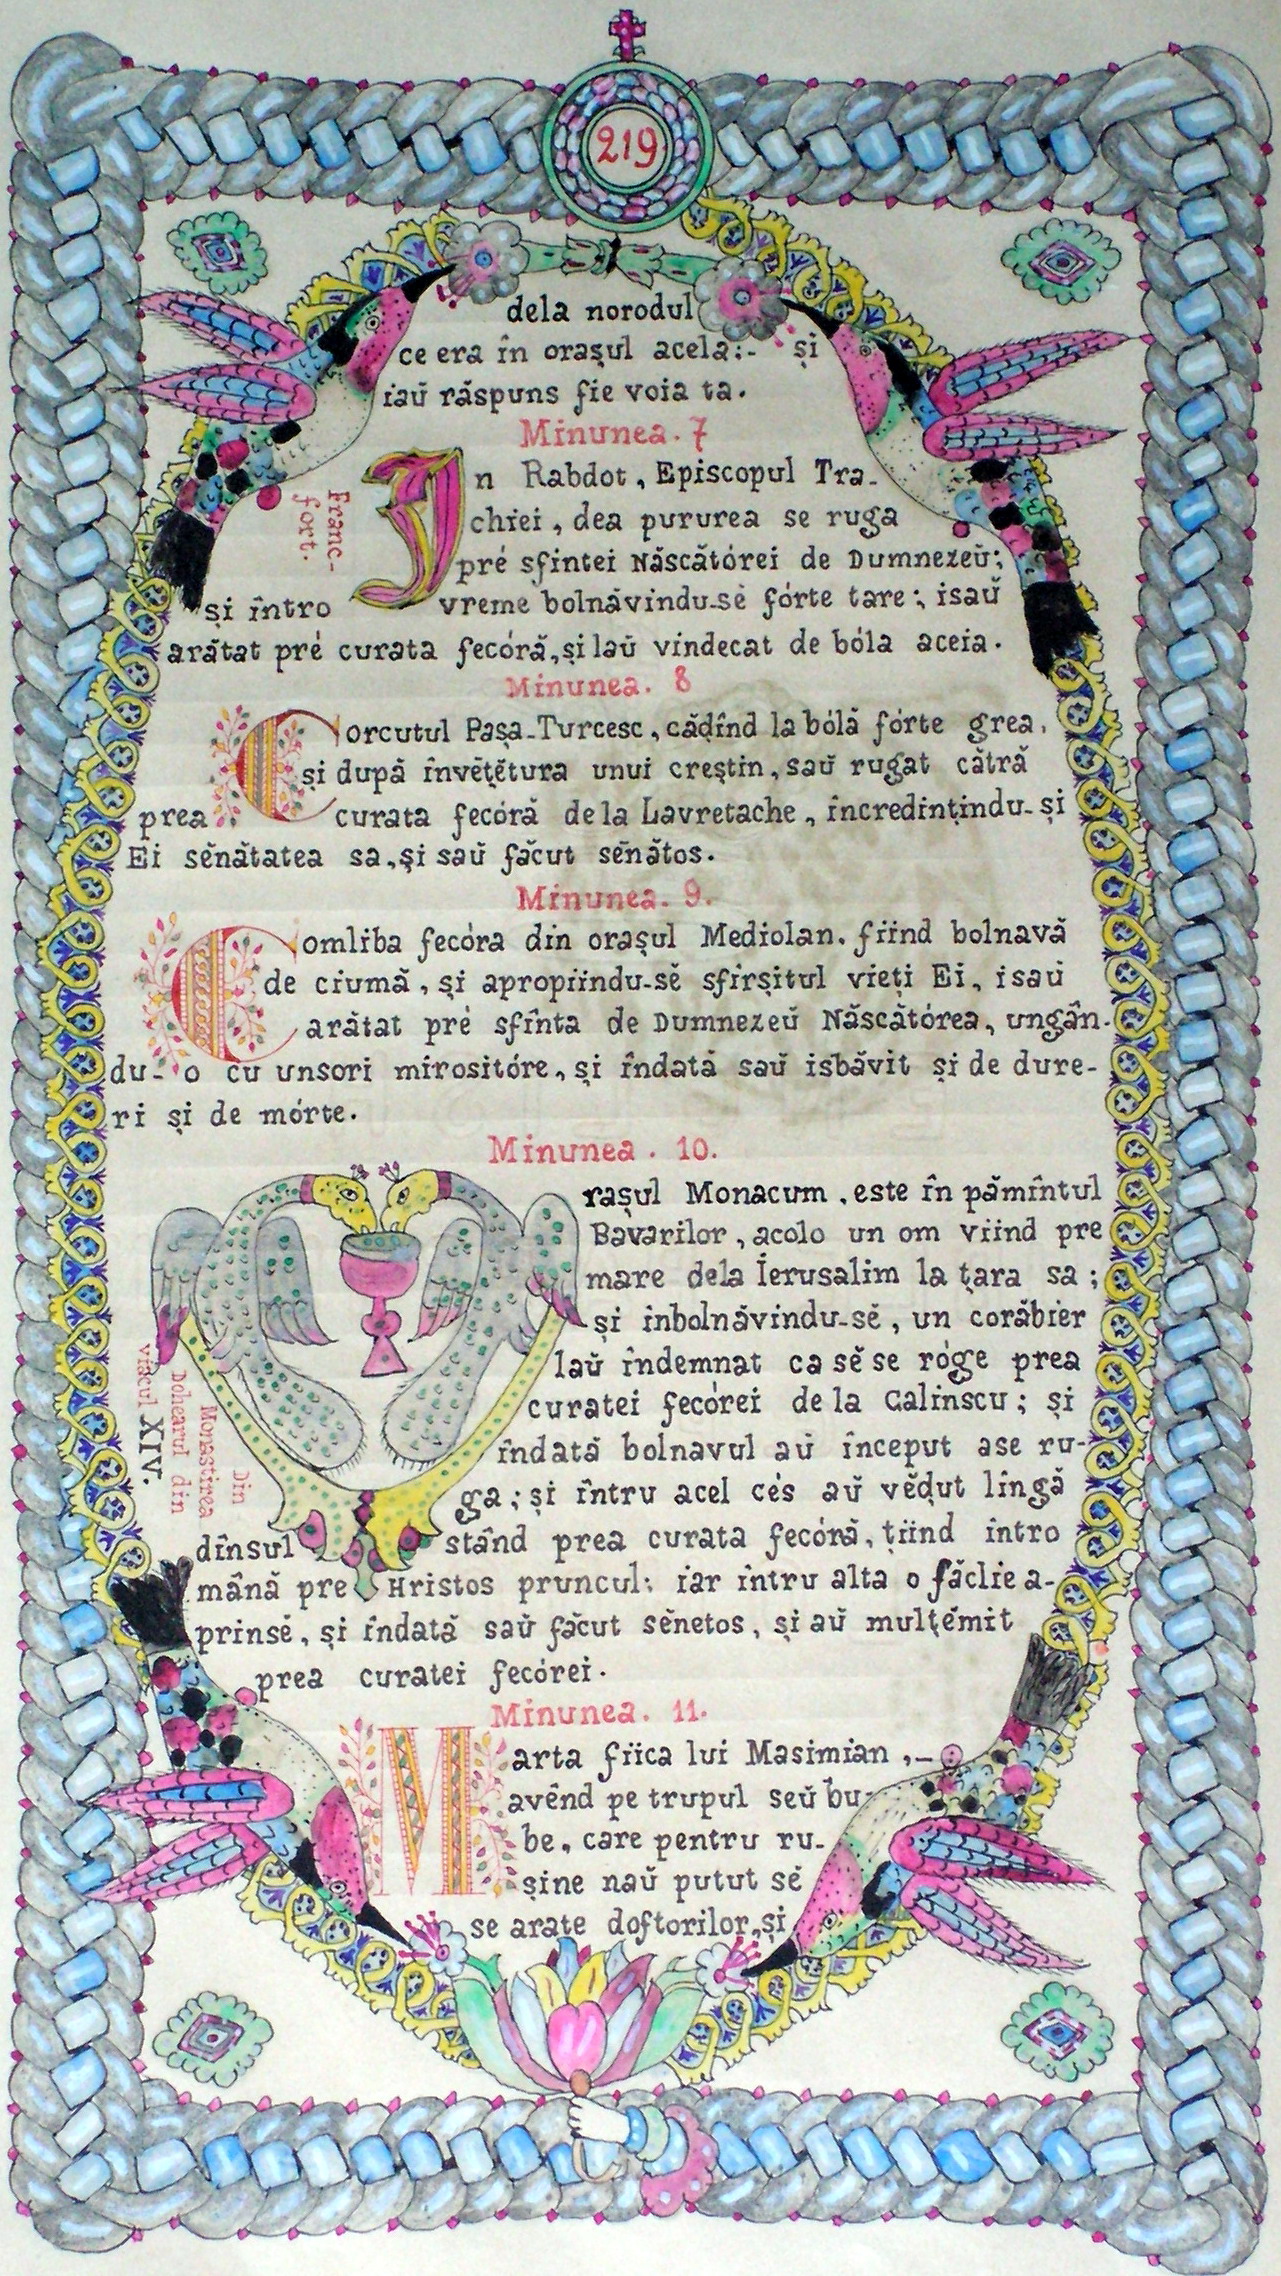 219
dela norodul
ce era în orașul acela:- și
iaŭ răspuns fie voia ta.
Minunea. 7
În Rabdot, Episcopul Tra-
chiei, dea pururea se ruga
pré sfintei Născătórei de Dumnezeŭ;
și întro vreme bolnăvindu-sĕ fórte tare; isaŭ
arătat pré curata fecóră, și laŭ vindecat de bóla aceia.
Franc-
fort.
Minunea. 8
Corcutul Pașa-Turcesc, cădînd la bólă fórte grea,
și după învĕțĕtura unui creștin, saŭ rugat cătră
prea curata fecóră dela Lavretache, încredințindu-și
Ei sĕnătatea sa, și saŭ făcut sĕnătos.
Minunea. 9.
Comliba fecóra din orașul Mediolan, fiind bolnavă
de ciumă, și apropiindu-sĕ sfîrșitul vieți Ei, isaŭ
arătat pré sfînta de Dumnezeŭ Născătórea, ungân-
du-o cu unsori mirositóre, și îndată saŭ isbăvit și de dure-
ri și de mórte.
Minunea. 10.
rașul Monacum, este în pămîntul
Bavarilor, acolo un om viind pre
mare dela Ierusalim la țara sa;
și inbolnăvindu-sĕ, un corăbier
laŭ îndemnat ca sĕ se róge prea
curatei fecórei de la Galinscu; și
îndată bolnavul aŭ început ase ru-
ga; și întru acel cés aŭ vĕdut lîngă
dînsul stând prea curata fecóră, țiind întro
mână pre Hristos pruncul; iar întru alta o făclie a-
prinsĕ, și îndată saŭ făcut sĕnetos, și aŭ mulțĕmit
prea curatei fecórei.
Din
Monastirea
Dohearul din
viacul XIV.
Minunea. 11.
Marta fiica lui Masimian,-
avênd pe trupul seŭ bu-
be, care pentru ru-
șine naŭ putut sĕ
se arate doftorilor, și